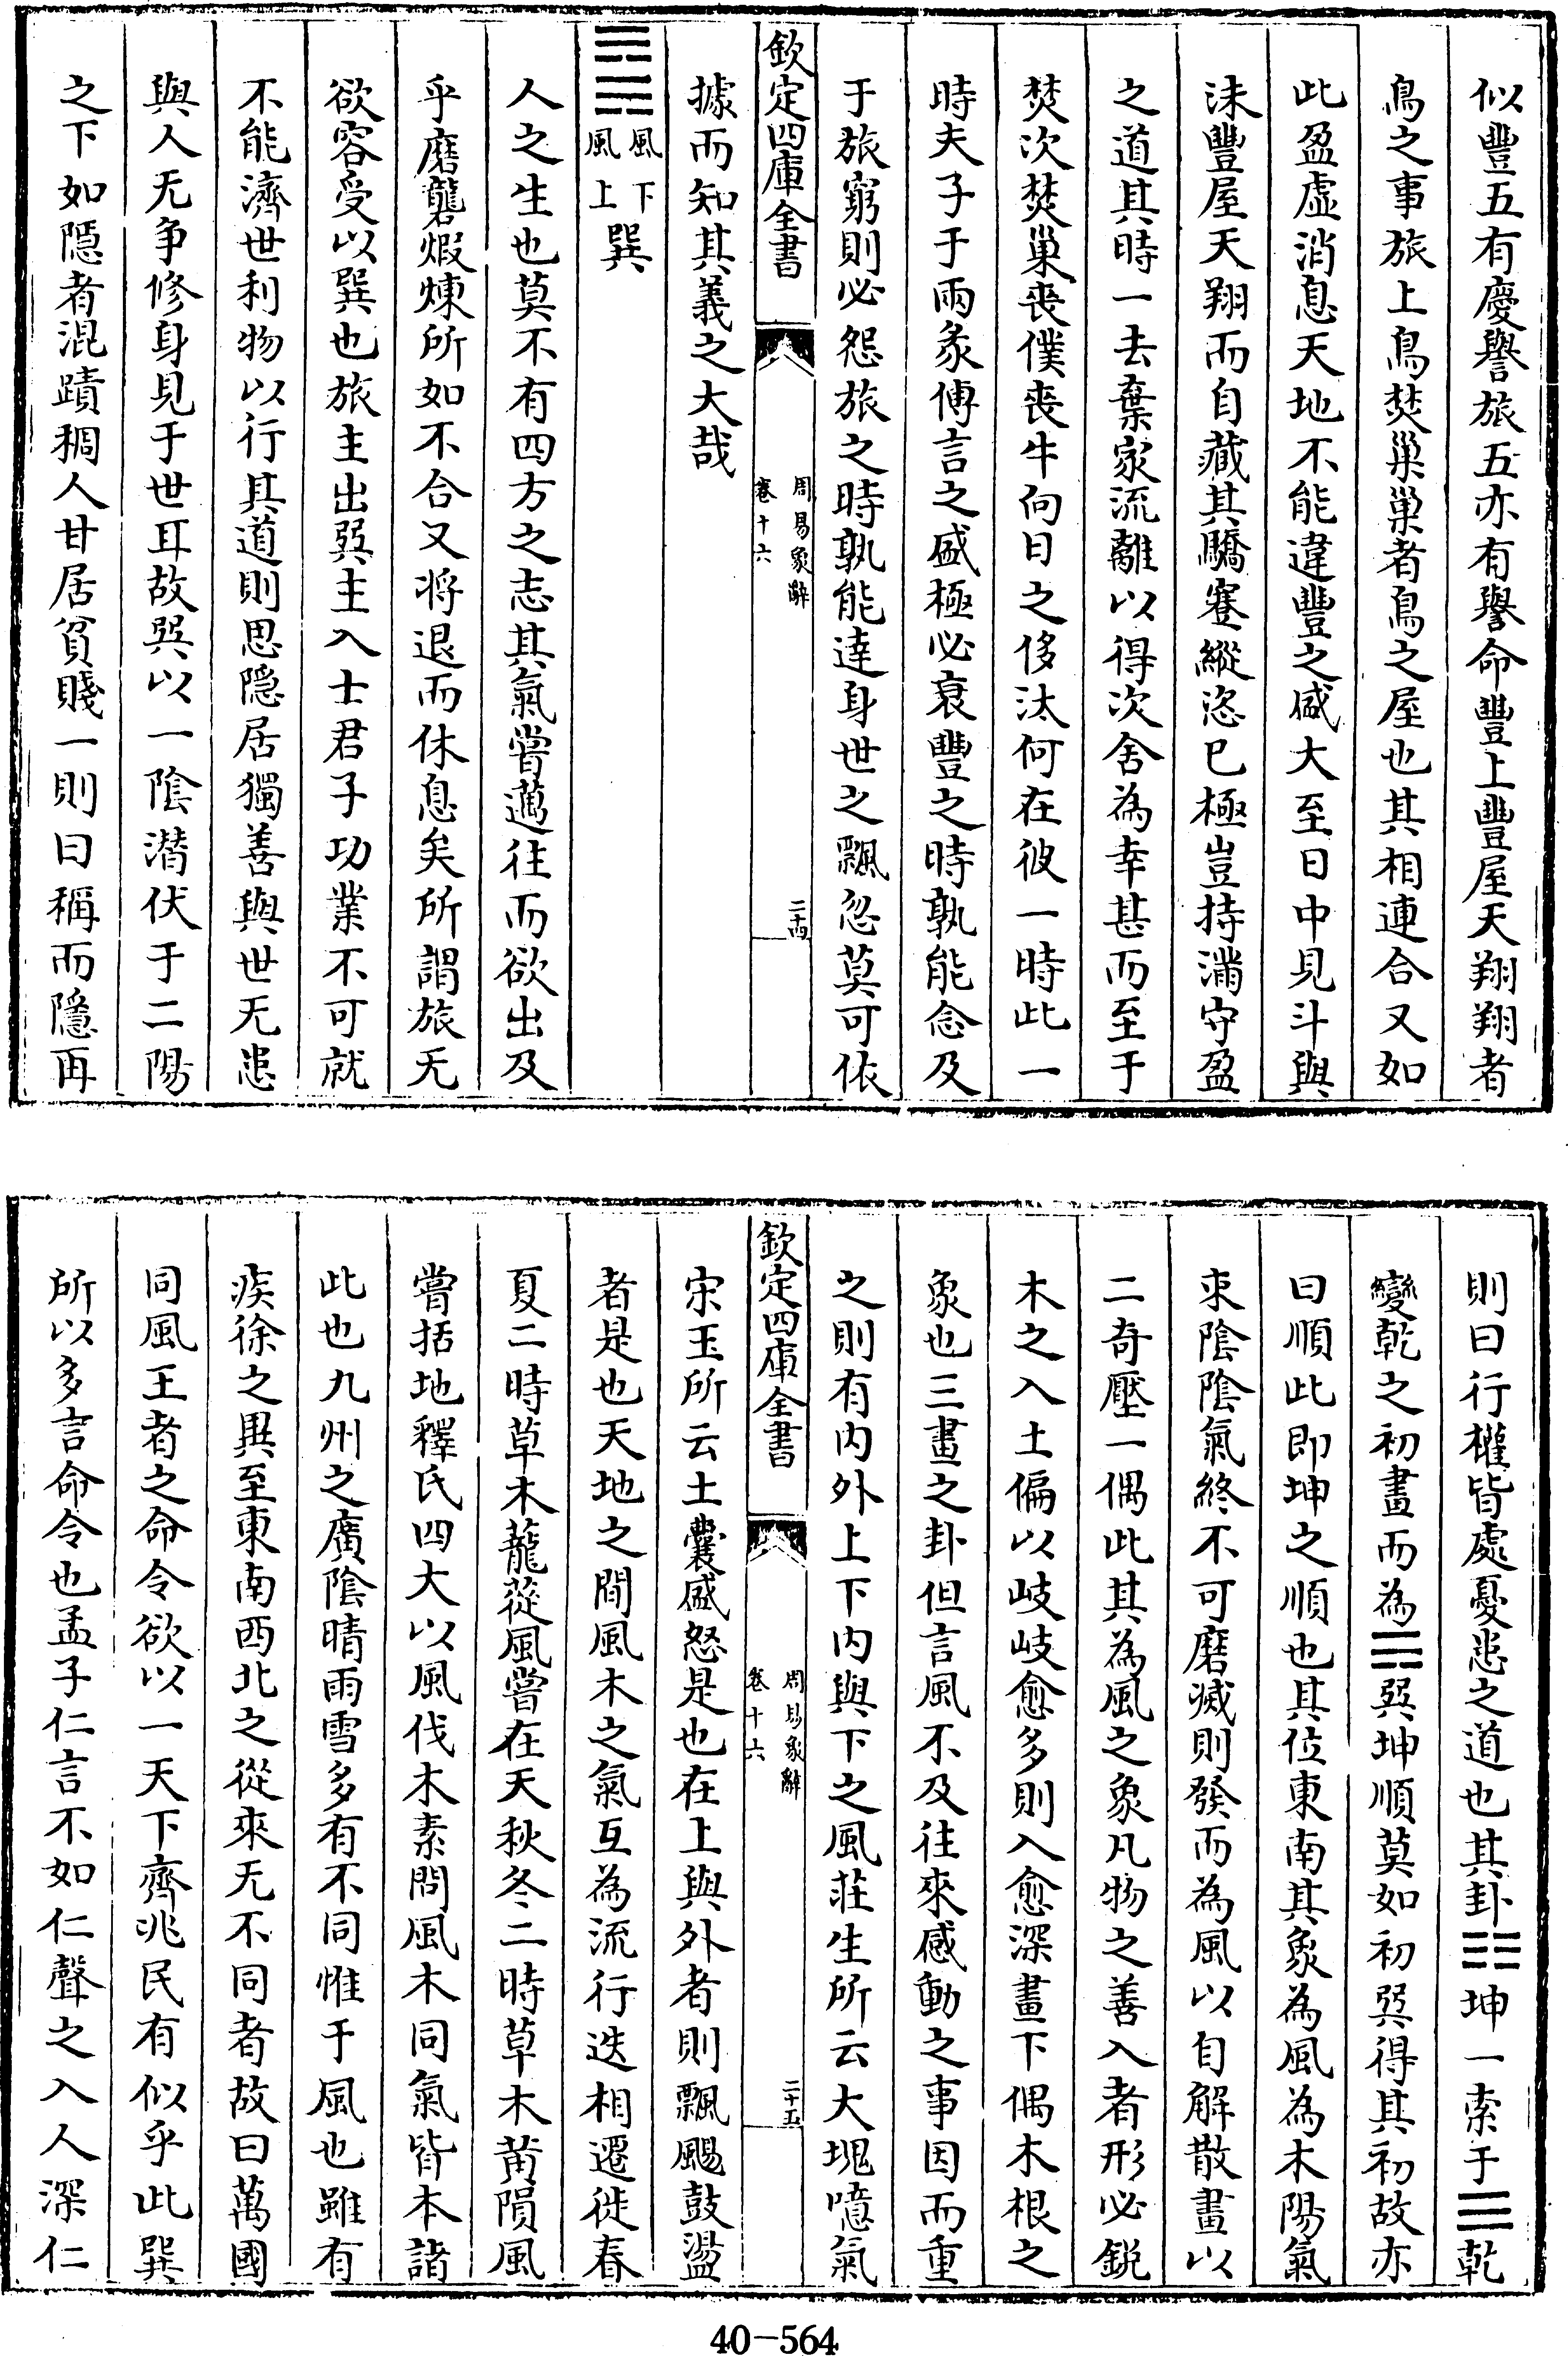 似豐五有慶譽旅五亦有譽命豐上豐屋天翔翔者
鳥之事旅上鳥焚巢巢者鳥之屋也其相連合又如
此盈虛消息天地不能違豐之盛大至日中見斗與
沬豐屋天翔而自藏其驕蹇縱恣已極豈持滿守盈
之道其時一去棄家流離以得次舍為幸甚而至于
焚次焚巢喪僕喪牛向日之侈汰何在彼一時此一
時夫子于兩彖傳言之盛極必衰豐之時孰能念及
于旅窮則必怨旅之時孰能達身世之飄忽莫可依
欽定四庫全書
周易象辭
卷十六
二十四
據而知其義之大哉
䷸
風下
風上
巽
人之生也莫不有四方之志其氣嘗邁往而欲出及
乎磨礱煆煉所如不合又將退而休息矣所謂旅无
欲容受以巽也旅主出巽主入士君子功業不可就
不能濟世利物以行其道則思隱居獨善與世无患
與人无爭修身見于世耳故巽以一陰潛伏于二陽
之下如隱者混蹟稠人甘居貧賤一則曰稱而隱再
則曰行權皆處憂患之道也其卦☷坤一索于☰乾
變乾之初畫而為☴巽坤順莫如初巽得其初故亦
曰順此即坤之順也其位東南其象為風為木陽氣
束陰陰氣終不可磨滅則發而為風以自解散畫以
二奇壓一偶此其為風之象凡物之善入者形必銳
木之入土偏以岐岐愈多則入愈深畫下偶木根之
象也三畫之卦但言風不及往來感動之事因而重
之則有內外上下內與下之風莊生所云大塊噫氣
欽定四庫全書
周易象辭
卷十六
二十五
宋玉所云土囊盛怒是也在上與外者則飄颺鼓盪
者是也天地之間風木之氣互為流行迭相遷徙春
夏二時草木蘢蓯風嘗在天秋冬二時草木黃隕風
嘗括地釋氏四大以風伐木素問風木同氣皆本諸
此也九州之廣陰晴雨雪多有不同惟于風也雖有
疾徐之異至東南西北之從來无不同者故曰萬國
同風王者之命令欲以一天下齊兆民有似乎此巽
所以多言命令也孟子仁言不如仁聲之入人深仁
40-564